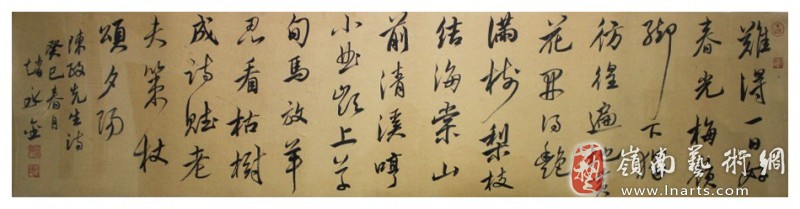 難得一日好
春光梅嶺
腳下
彷徨遍地黃
花開得艷
滿樹梨枝
結海棠山
前清溪哼
小曲上草
甸馬放羊
忍看枯樹
成詩賦老
夫策杖
頌夕陽
陳政先生詩
癸巳春月
趙永金
嶺南藝術網
www.lnarts.com